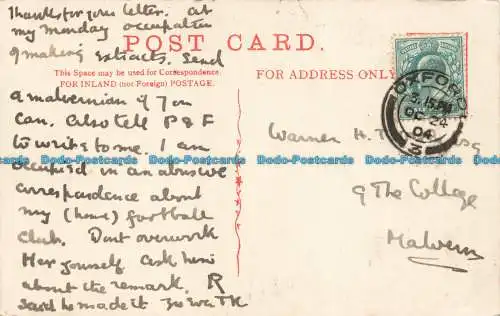 Thanks for your letter. At
my Monday occupation
of making extracts. Send
POST CARD.
This Space may be used for Correspondence
FOR INLAND (not Foreign) POSTAGE.
FOR ADDRESS ONLY
a Malvernian if you
can. Also tell P & F
to write to me. I am
occupied in an abusive
correspondence about
my (home) football
club. Dont overwork
yourself ask him
about the remark. R
said he made it
OXFORD
5.15 PM
OC 24
04
3
Warner H. T Esq
9 The College
Malvern
Dodo-Postcards Dodo-Postcards Dodo-Postcards Dodo-Postcards Dodo-Postcards